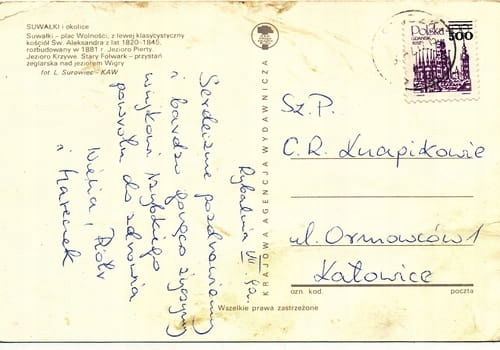 SUWAŁKI i okolice
Suwałki – plac Wolności, z lewej klasycystyczny
kościół Św. Aleksandra z lat 1820-1845,
rozbudowany w 1881 r. Jezioro Pierty.
Jezioro Krzywe. Stary Folwark – przystań
żeglarska nad jeziorem Wigry
fot. L. Surowiec - KAW
VII
Serdecznie pozdrawiamy
i bardzo gorąco życzymy
wujkowi szybkiego
powrotu do zdrowia
Piotr
KRAJOWA AGENCJA WYDAWNICZA
Polska
GDAŃSK
500
Sz. P.
C. R. Knapikowie
ul. Ormowców 1
Katowice
ozn. kod
poczta
Wszelkie prawa zastrzeżone